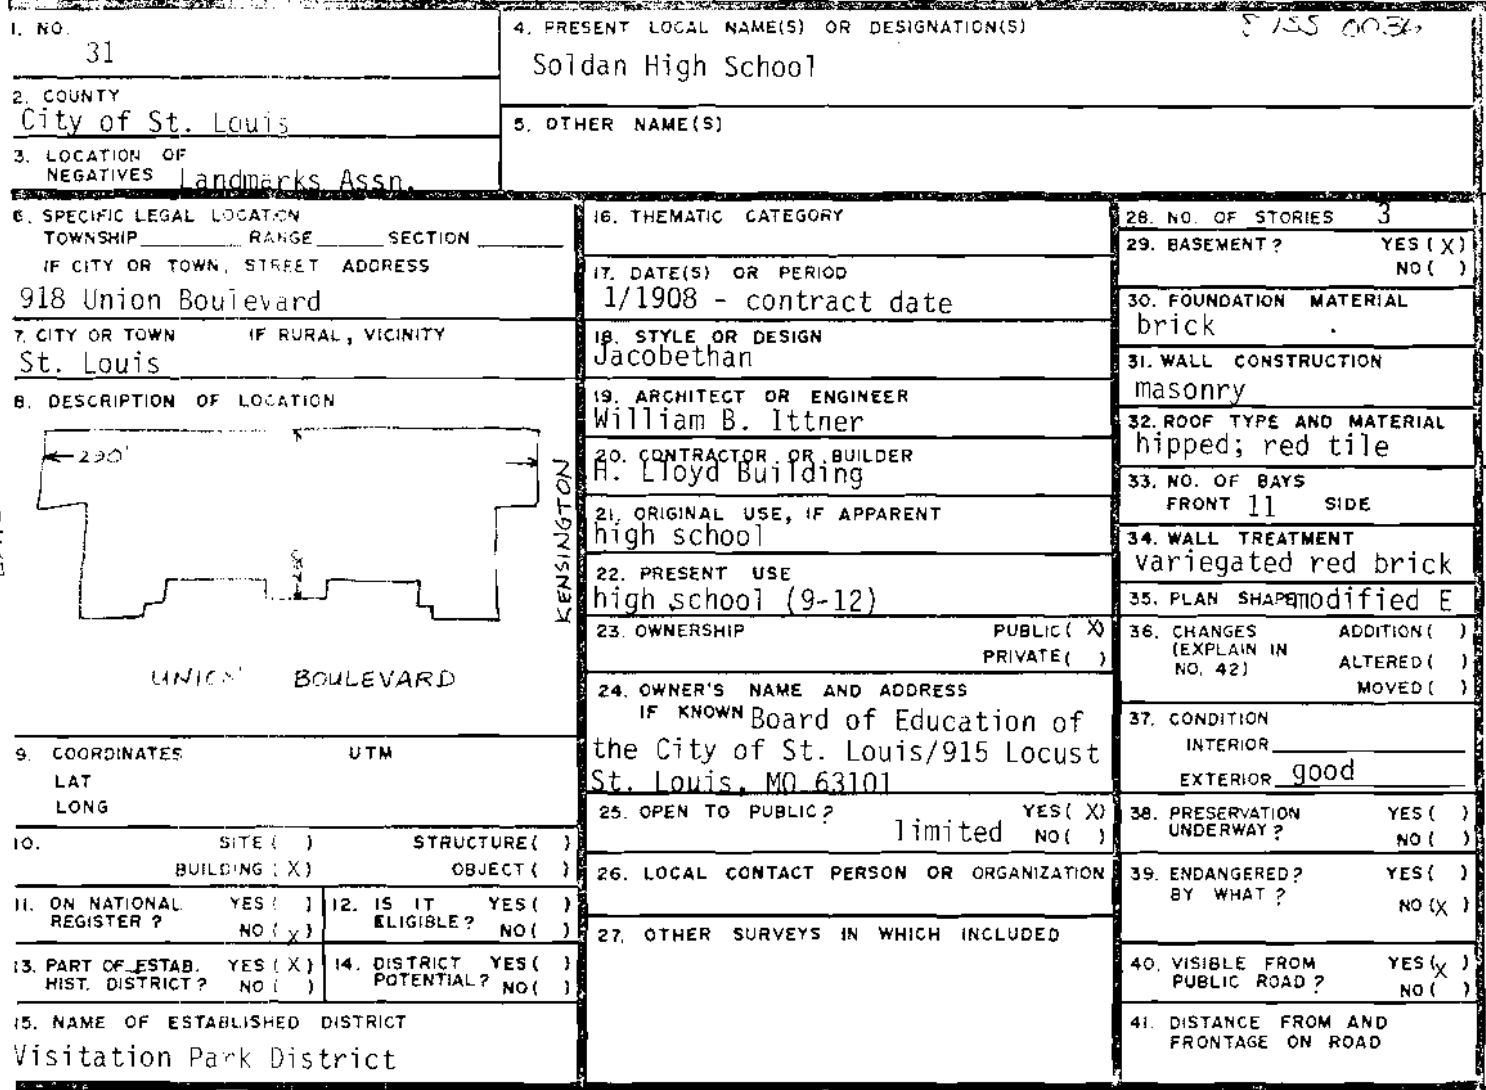 1. NO.
31
4. PRESENT LOCAL NAME(S) OR DESIGNATION(S)
Soldan High School
2. COUNTY
City of St. Louis
5. OTHER NAME(S)
3. LOCATION OF
NEGATIVES Landmarks Assn.
6. SPECIFIC LEGAL LOCATION
TOWNSHIP RANGE SECTION
IF CITY OR TOWN, STREET ADDRESS
918 Union Boulevard
7. CITY OR TOWN IF RURAL, VICINITY
St. Louis
8. DESCRIPTION OF LOCATION
290'
KENSINGTON
UNION BOULEVARD
9. COORDINATES UTM
LAT
LONG
10. SITE ( ) STRUCTURE ( )
BUILDING (X) OBJECT ( )
11. ON NATIONAL YES ( )
REGISTER ? NO (X)
12. IS IT YES ( )
ELIGIBLE? NO ( )
13. PART OF ESTAB. YES (X)
HIST. DISTRICT? NO ( )
14. DISTRICT YES ( )
POTENTIAL? NO ( )
15. NAME OF ESTABLISHED DISTRICT
Visitation Park District
16. THEMATIC CATEGORY
17. DATE(S) OR PERIOD
1/1908 - contract date
18. STYLE OR DESIGN
Jacobethan
19. ARCHITECT OR ENGINEER
William B. Ittner
20. CONTRACTOR OR BUILDER
H. Lloyd Building
21. ORIGINAL USE, IF APPARENT
high school
22. PRESENT USE
high school (9-12)
23. OWNERSHIP PUBLIC (X)
PRIVATE ( )
24. OWNER'S NAME AND ADDRESS
IF KNOWN Board of Education of
the City of St. Louis/915 Locust
St. Louis, MO 63101
25. OPEN TO PUBLIC? YES (X)
limited NO ( )
26. LOCAL CONTACT PERSON OR ORGANIZATION
27. OTHER SURVEYS IN WHICH INCLUDED
28. NO. OF STORIES 3
29. BASEMENT? YES (X)
NO ( )
30. FOUNDATION MATERIAL
brick
31. WALL CONSTRUCTION
masonry
32. ROOF TYPE AND MATERIAL
hipped; red tile
33. NO. OF BAYS
FRONT 11 SIDE
34. WALL TREATMENT
variegated red brick
35. PLAN SHAPE modified E
36. CHANGES ADDITION ( )
(EXPLAIN IN
NO. 42) ALTERED ( )
MOVED ( )
37. CONDITION
INTERIOR
EXTERIOR good
38. PRESERVATION YES ( )
UNDERWAY? NO ( )
39. ENDANGERED? YES ( )
BY WHAT ? NO (X)
40. VISIBLE FROM YES (X)
PUBLIC ROAD? NO ( )
41. DISTANCE FROM AND
FRONTAGE ON ROAD